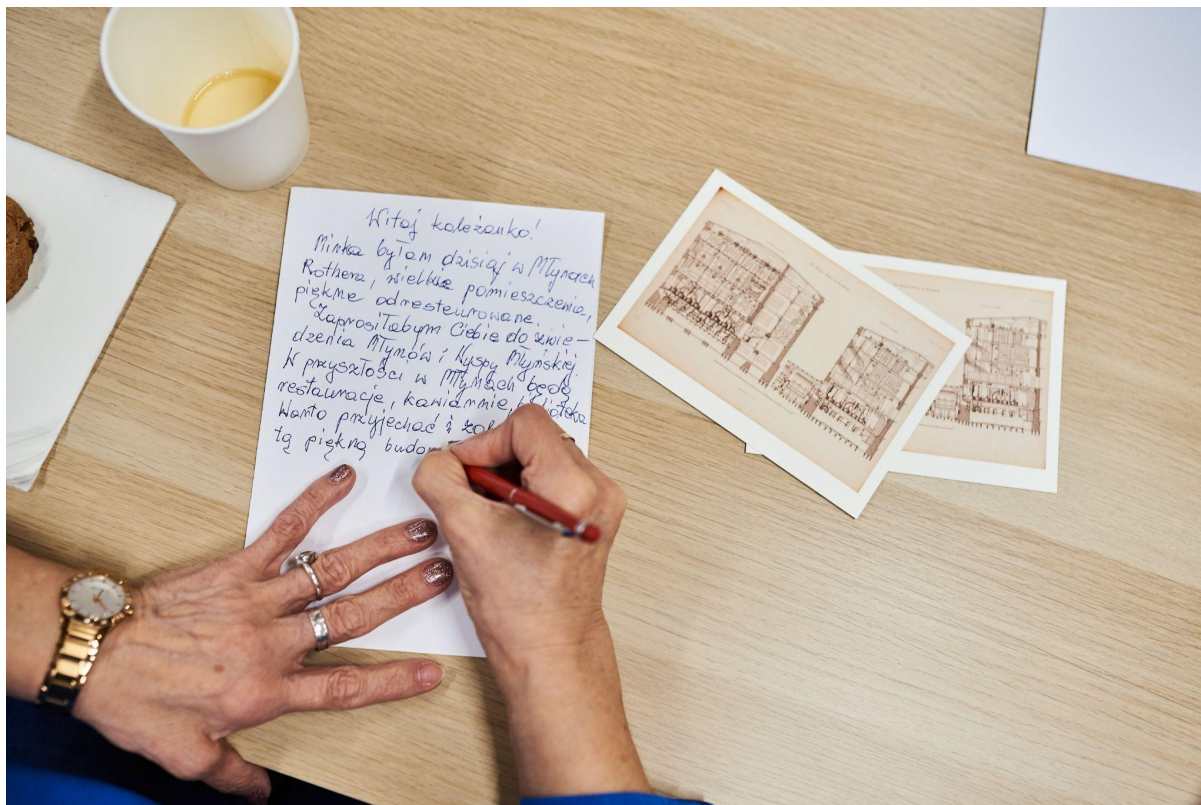 Witaj koleżanko!
Minka byłam dzisiaj w Młynach
Rothera, wielkie pomieszczenia,
piękne odrestaurowane.
Zaprosiłabym Ciebie do zwie-
dzenia Młynów i Wyspy Młyńskiej.
W przyszłości w Młynach będą
restauracje, kawiarnie,
Warto przyjechać i
tą piękną